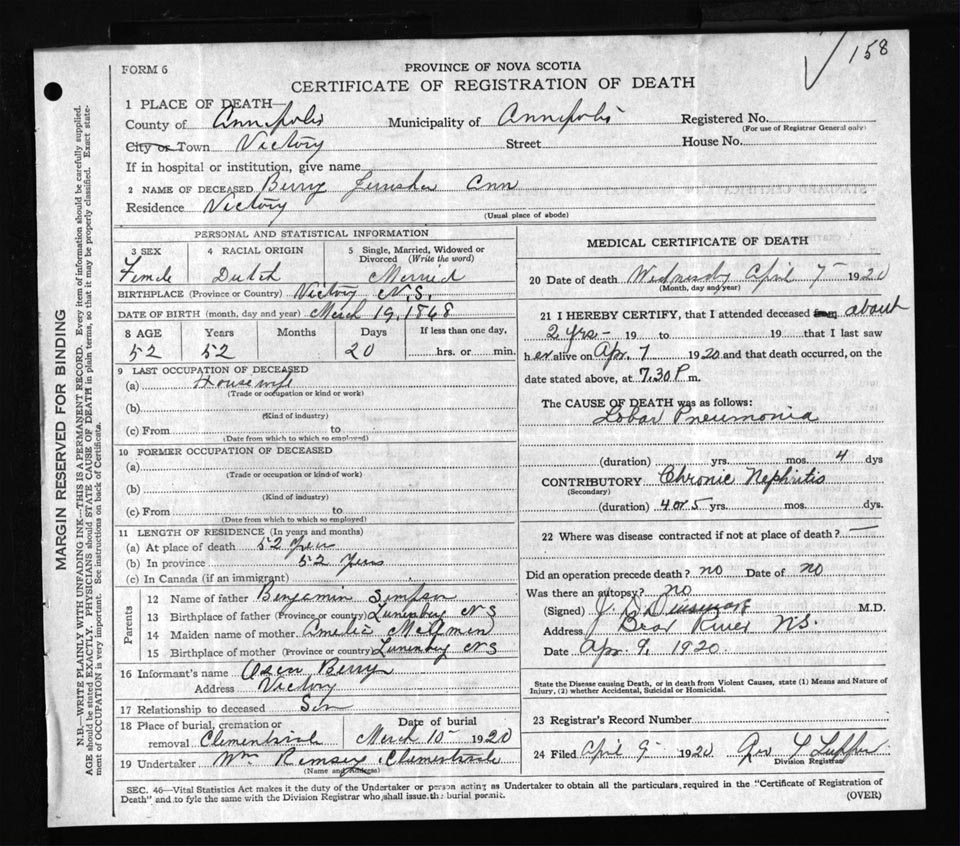 158
FORM 6
PROVINCE OF NOVA SCOTIA
CERTIFICATE OF REGISTRATION OF DEATH
1 PLACE OF DEATH—
County of Annapolis Municipality of Annapolis Registered No.
(For use of Registrar General only)
City or Town Victory Street House No.
If in hospital or institution, give name
2 NAME OF DECEASED Berry Ann
Residence Victory
(Usual place of abode)
PERSONAL AND STATISTICAL INFORMATION
3 SEX 4 RACIAL ORIGIN 5 Single, Married, Widowed or Divorced (Write the word)
Female Dutch Married
BIRTHPLACE (Province or Country) Victory N.S.
DATE OF BIRTH (month, day and year) March 19, 1868
8 AGE Years Months Days If less than one day,
52 52 20 hrs. or min.
9 LAST OCCUPATION OF DECEASED
(a) Housewife
(Trade or occupation or kind or work)
(b)
(Kind of industry)
(c) From to
(Date from which to which so employed)
10 FORMER OCCUPATION OF DECEASED
(a)
(Trade or occupation or kind of work)
(b)
(Kind of industry)
(c) From to
(Date from which to which so employed)
11 LENGTH OF RESIDENCE (In years and months)
(a) At place of death 52 Years
(b) In province 52 Years
(c) In Canada (if an immigrant)
Parents
12 Name of father Benjamin Simpson
13 Birthplace of father (Province or country) Lunenburg NS
14 Maiden name of mother Amelia
15 Birthplace of mother (Province or country) Lunenburg NS
16 Informant's name Berry
Address Victory
17 Relationship to deceased Son
18 Place of burial, cremation or removal Clementsvale
Date of burial March 10 1920
19 Undertaker Wm Ramsey Clementsvale
(Name and Address)
MEDICAL CERTIFICATE OF DEATH
20 Date of death Wednesday April 7 1920
(Month, day and year)
21 I HEREBY CERTIFY, that I attended deceased from about
2 yrs - 19 to 19 that I last saw
her alive on Apr. 7 1920 and that death occurred, on the
date stated above, at 7.30 P m.
The CAUSE OF DEATH was as follows:
Lobar Pneumonia
(duration) yrs. mos. 4 dys
CONTRIBUTORY Chronic Nephritis
(Secondary)
(duration) 4 or 5 yrs. mos. dys.
22 Where was disease contracted if not at place of death? —
Did an operation precede death? no Date of no
Was there an autopsy? no
(Signed) M.D.
Address Bear River N.S.
Date Apr. 9, 1920
State the Disease causing Death, or in death from Violent Causes, state (1) Means and Nature of
Injury, (2) whether Accidental, Suicidal or Homicidal.
23 Registrar's Record Number
24 Filed April 9 1920 Rev
Division Registrar
SEC. 46—Vital Statistics Act makes it the duty of the Undertaker or person acting as Undertaker to obtain all the particulars required in the "Certificate of Registration of
Death" and to fyle the same with the Division Registrar who shall issue the burial permit.
(OVER)
MARGIN RESERVED FOR BINDING
N.B.—WRITE PLAINLY WITH UNFADING INK—THIS IS A PERMANENT RECORD. Every item of information should be carefully supplied.
AGE should be stated EXACTLY. PHYSICIANS should STATE CAUSE OF DEATH in plain terms, so that it may be properly classified. Exact state-
ment of OCCUPATION is very important. See instructions on back of Certificate.